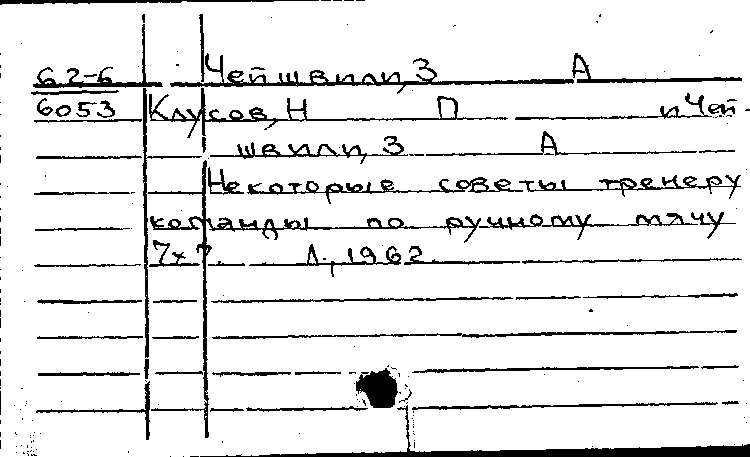 62-6 Чейшвили, З А
6053 Клусов, Н П и Чей-
швили, З А
Некоторые советы тренеру
команды по ручному мячу
7х7. Л., 1962.